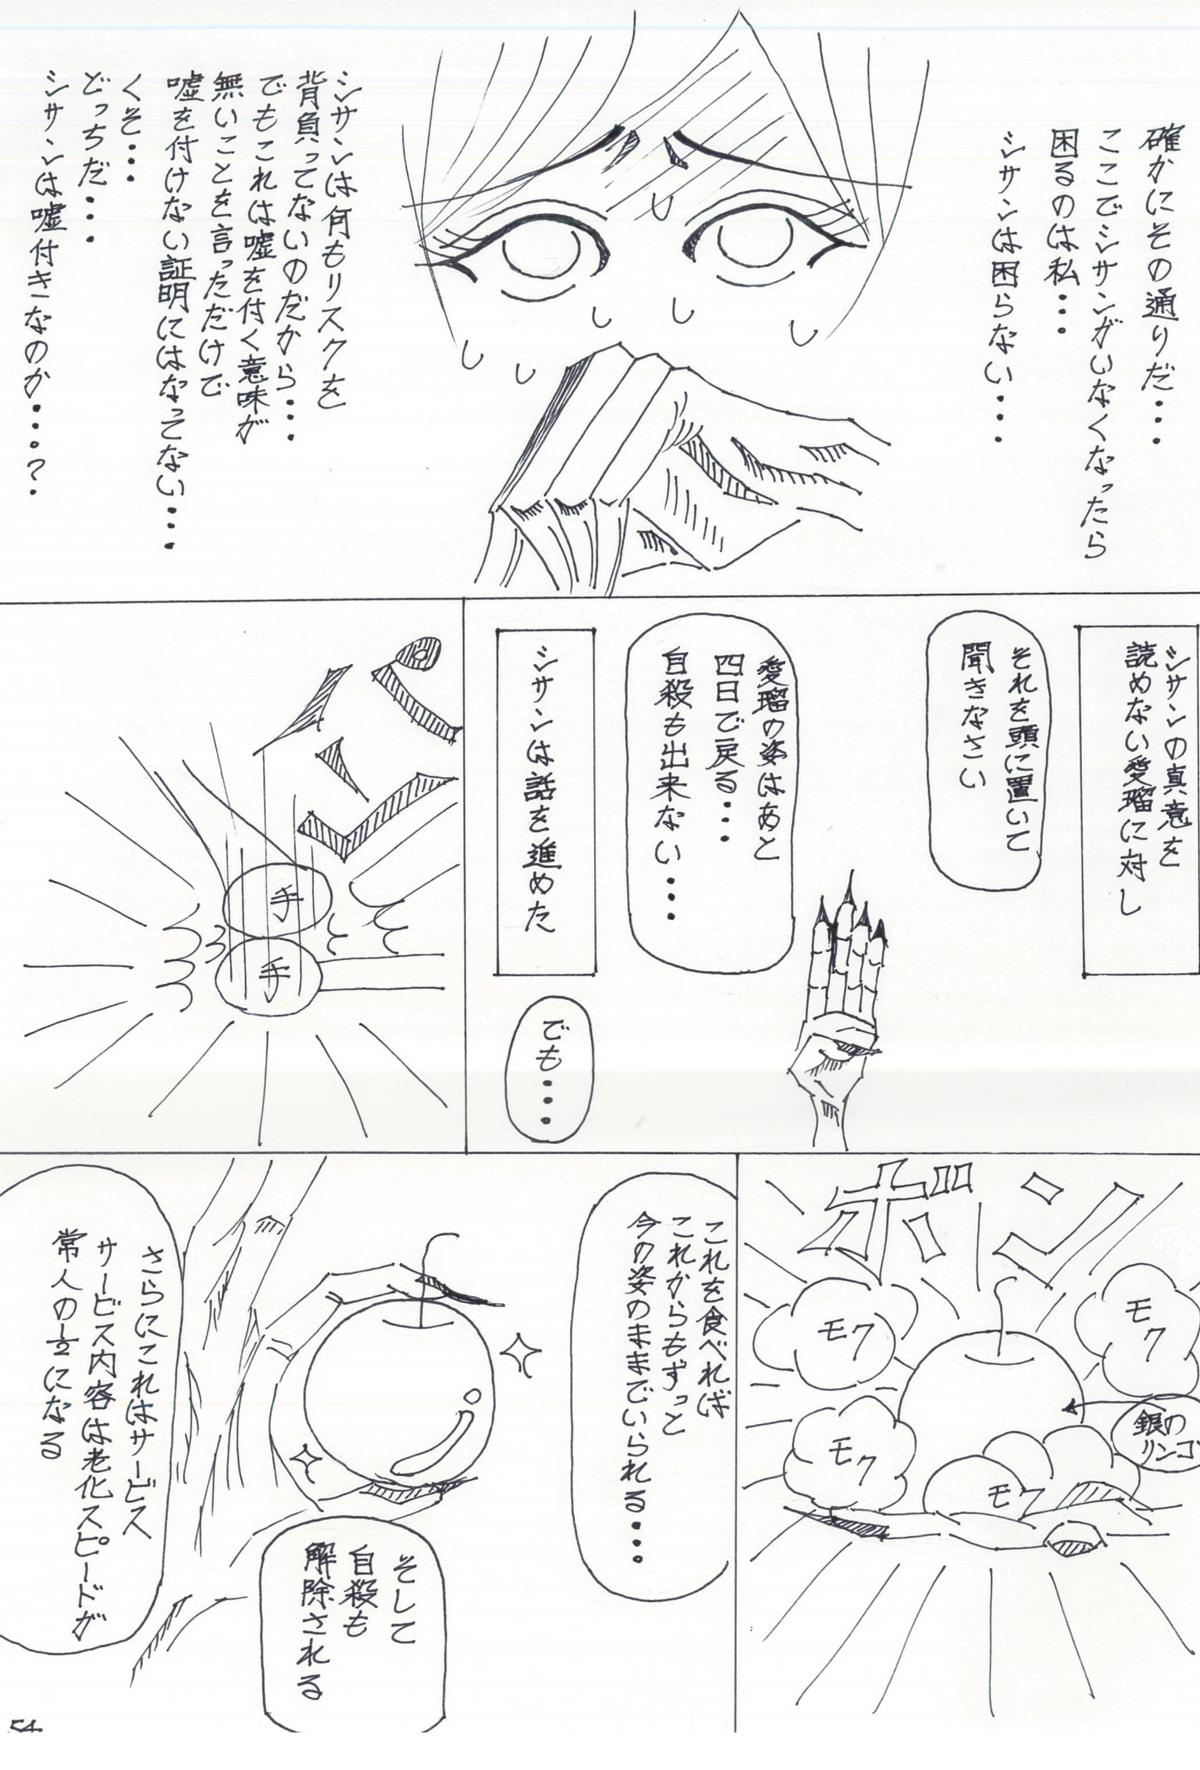 確かにその通りだ・・・
ここでシサンがいなくなったら
困るのは私・・・
シサンは困らない・・・
シサンは何もリスクを
背負ってないのだから・・・
でもこれは嘘を付く意味が
無いことを言っただけで
嘘を付けない証明にはなってない・・・
くそ・・・
どっちだ・・・
シサンは嘘付きなのか・・・。?
シサンの真意を
読めない愛瑠に対し
それを頭に置いて
聞きなさい
愛瑠の姿はあと
四日で戻る・・・
自殺も出来ない・・・
シサンは話を進めた
でも・・・
パン
手
手
ボン
モク
モク
モク
モク
銀の
リンゴ
これを食べれば
これからもずっと
今の姿のままでいられる・・・。
そして
自殺も
解除される
さらにこれはサービス
サービス内容は老化スピードが
常人の½になる
54